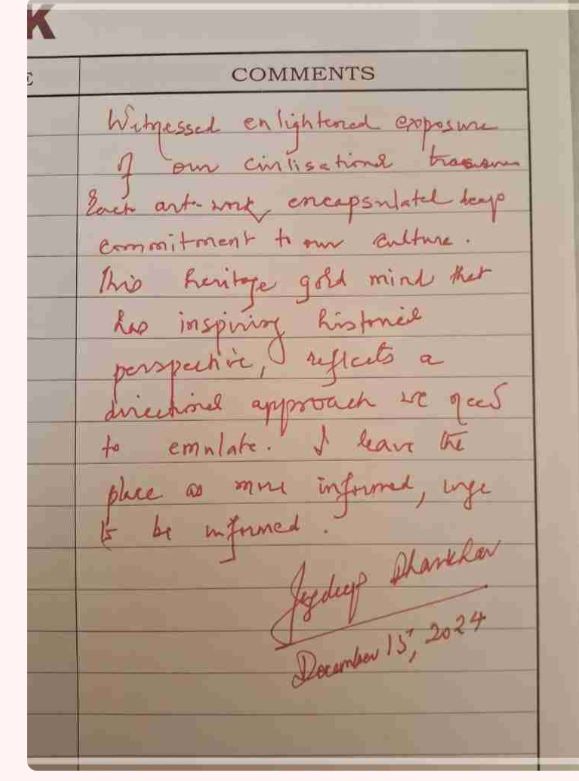 K
E
COMMENTS
Witnessed enlightened exposure
of our civilisational treasure
Each art-work, encapsulated deep
commitment to our culture.
This heritage gold mind that
has inspiring historical
perspective, reflects a
directional approach we need
to emulate. I leave the
place as more informed, urge
to be informed.
Jagdeep Dhankhar
December 15, 2024